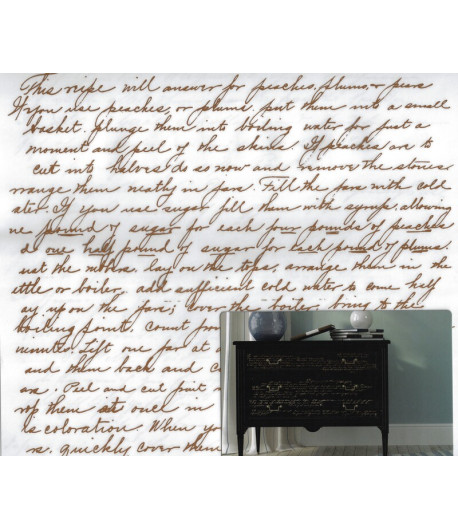 This recipe will answer for peaches, plums, or pears
If you use peaches, or plums, put them into a small
basket. plunge them into boiling water for just a
moment and peel of the skins. If peaches are to
cut into halves do so now and remove the stones
rrange them neatly in jars. Fill the jars with cold
ater. If you use sugar fill them with syrup, allowing
ne pound of sugar for each four pounds of peaches
d one half pound of sugar for each pound of plums.
ust the rubbers, lay on the tops, arrange them in the
ettle or boiler, add sufficient cold water to come half
ay up on the jars; cover the boiler, bring to the
boiling point. Count from
minutes. Lift one jar at a
and them back and
ars. Peel and cut fruit
rop them at once in
is coloration. When yo
rs. quickly cover them